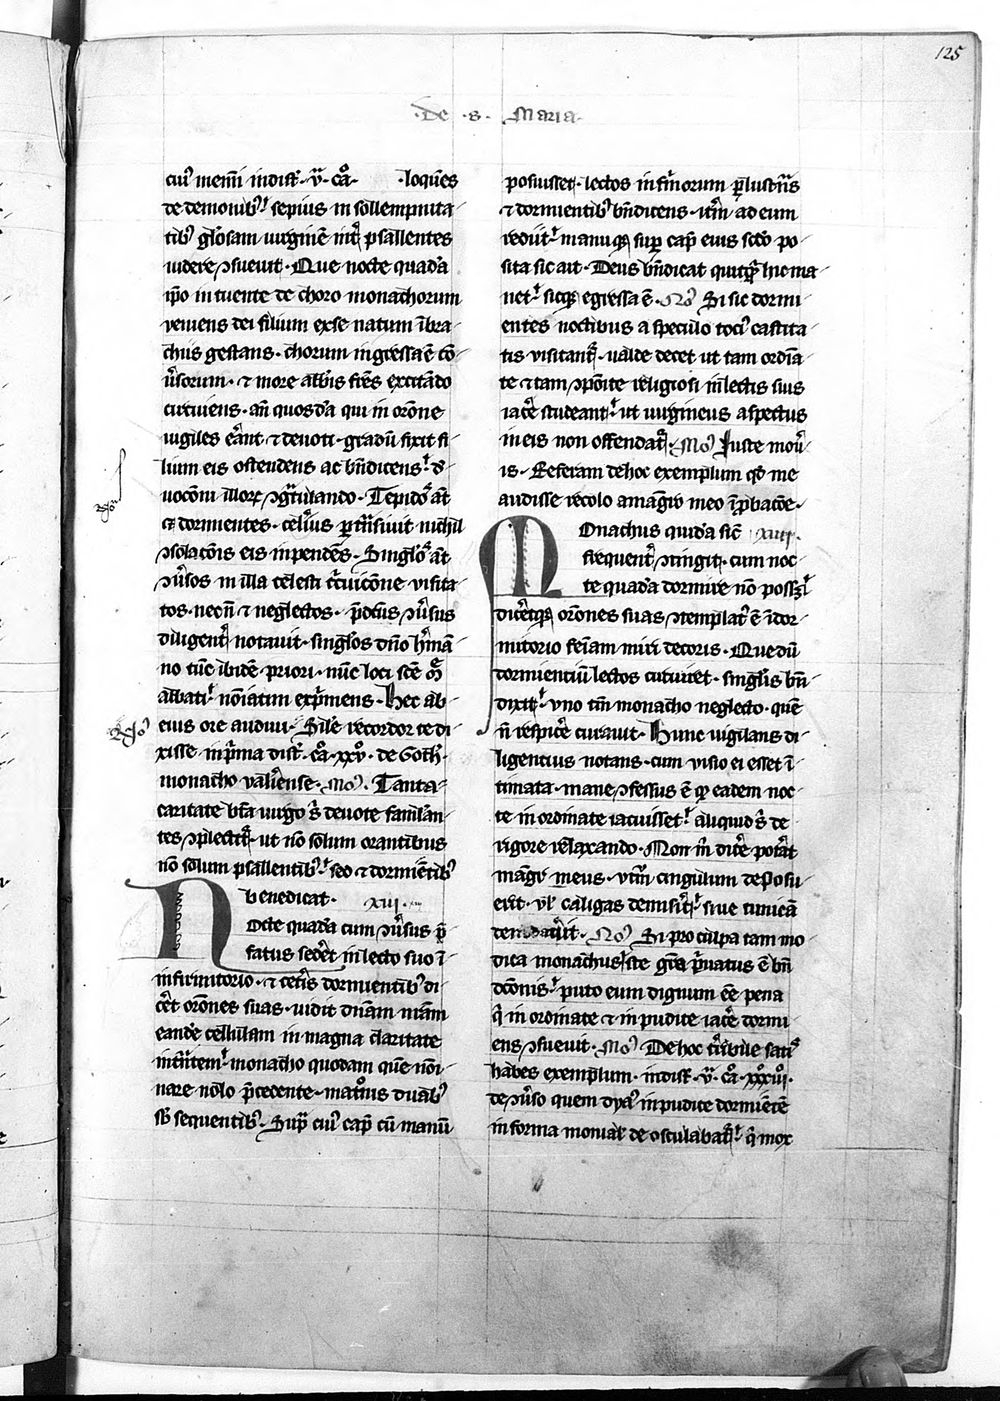 125
·de ·s· Maria·
cuiꝰ memī in dist̄· v̄· cᷓa· ·loqn̄es
de demonibꝰ sepius in sollempnita-
tibꝰ gl̓osam uirginē int̓ psallentes
uidere ↄsueuit· Que nocte quadā
ip̄o intuente de choro monachorum
veniens dei filium ex se natum ībra-
chiis gestans· chorum ingressa ē cō-
u̓sorum· ⁊ more abb̄is fr̄es excitādo
circuiens· an̄ quosdā qui in orōne
uigiles er̄ant ⁊ deuoti· gradū fixit fi-
lium eis ostendens ac bn̄dicens· d̓-
uocōni illoꝝ ↄgr̄tulando· Tepidoˢ aūt
⁊ dormientes· celeriꝰ pertn̄siuit nichil
ↄsolacōis eis inpendēs· Singl̓oˢ aūt
ↄu̓sos in illa celesti circuicōne visita-
tos· necn̄ ⁊ neglectos· p̄dcūs ↄu̓sus
diligent̓ notauit· singl̓os dn̄o h̓mā-
no tūc ibidē priori· nūc loci scē m̄
abbati· noīatim exp̓mens· Hec ab
eius ore audiui· Sil̓e recordor te di-
xisse· in p̓ma dist̄· cᷓa· xxv· de Goth̓·
monacho val̓iense· No· Tanta
caritate bt̄a uirgo s̓ deuote famlan-
tes ↄplectit̓· ut nō solum orantibus
nō solum psallentibꝰ· sꝫ ⁊ dormiētibꝰ
benedicat· xiii·
Nocte quadā cum ↄu̓sus p̄-
fatus sed̓et in lecto suo ī
infirmitorio· ⁊ cet̓is dormientibꝰ di-
c̓et orōnes suas· uidit dn̄am nr̄am
eandē cellulam in magna claritate
int̓tem· monacho quodam quē nōi-
nare nōlo p̓cedente· matˢnis duabꝰ
sb̄ sequentibꝰ· Sup̄ cuiꝰ cap̄ cū manū
posuisset· lectos infirmorum p̓lustn̄s
⁊ dormientibꝰ bn̄dicens· itm̄ ad eum
rediit· manuqꝫ sup̄ cap̄ eius scdo po-
sita sic ait· Deus bn̄dicat quitq̓d hic ma-
net· sicqꝫ egressa ē· No Si sic dormi-
entes noctibus a speculo tociꝰ castita-
tis visitant̓· ualde decet ut tam ordīa-
te ⁊ tam ↄpōite religiosi in lectis suis
iac̓e studeant· ut uirgineus aspectus
in eis non offendat̓· Mo Iuste moūi-
is· Referam de hoc exemplum qd̓ me
audisse recolo a mag̓ro meo ī p̓bacōe·
Monachus quidā sic̄ xiiii·
frequent̓ ↄtingit· cum noc-
te quadā dormire nō possꝫ
dic̓etqꝫ orōnes suas ↄtemplatˢ ē ī dor-
mitorio fēiam miri decoris· Que dū
dormientiū lectos circuiret· singl̓is bn̄-
dixit· vno tm̄ monacho neglecto· quē
n̄ respic̓e curauit· Hunc uigilans di-
ligentius notans· cum visio ei esset ī-
timata· mane ↄfessus ē qꝫ eadem noc-
te in ordinate iacuisset· aliquid s̓ de
rigore relaxando· Non m̄ dic̓e pot̓at
mag̓r meus· vtrū cingulum deposu-
erit· vl̓ caligas demisit̓· siue tunicā
No Si pro culpa tam mo-
dica monachus iste gr̄a p̓uatus ē bn̄-
dcōnis· puto eum dignum eē pena
q̓ in ordinate ⁊ in pudice iac̓e dormi-
ens ↄsueuit· Mo De hoc tˢribile satiˢ
habes exemplum· in dist̄· v̄· cᷓa· xxxiii·
de ↄu̓so quem dyaꝰ inpudice dormiētē
in forma monial̓ de osculabat̓· q̓ mox